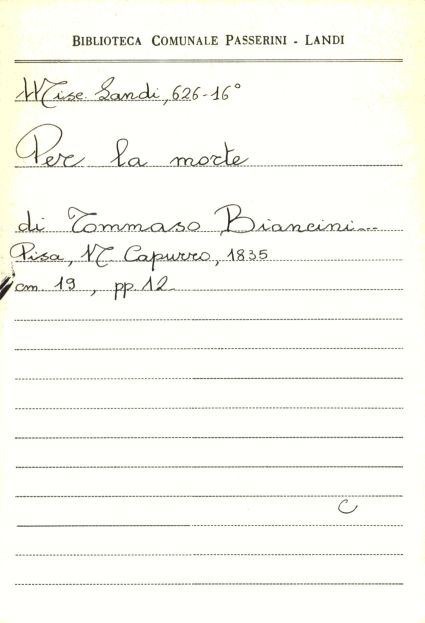 BIBLIOTECA COMUNALE PASSERINI - LANDI
Misc. Landi, 626-16°
Per la morte
di Tommaso Biancini...
Pisa, N. Capurro, 1835
cm. 19, pp. 12
C